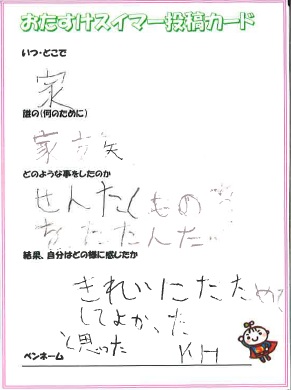 おたすけスイマー投稿カード
いつ・どこで
家
誰の(何のために)
家族
どのような事をしたのか
せんたくもの
をたたんだ
結果、自分はどの様に感じたか
きれいにたためて
してよかった
と思った
KH
ペンネーム